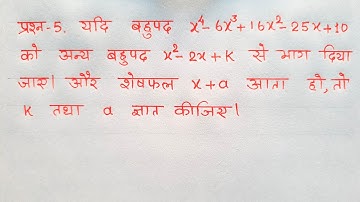 प्रश्न-5. यदि बहुपद x⁴-6x³+16x²-25x+10
को अन्य बहुपद x²-2x+K से भाग दिया
जाए। और शेषफल x+a आता हो, तो
K तथा a ज्ञात कीजिए।